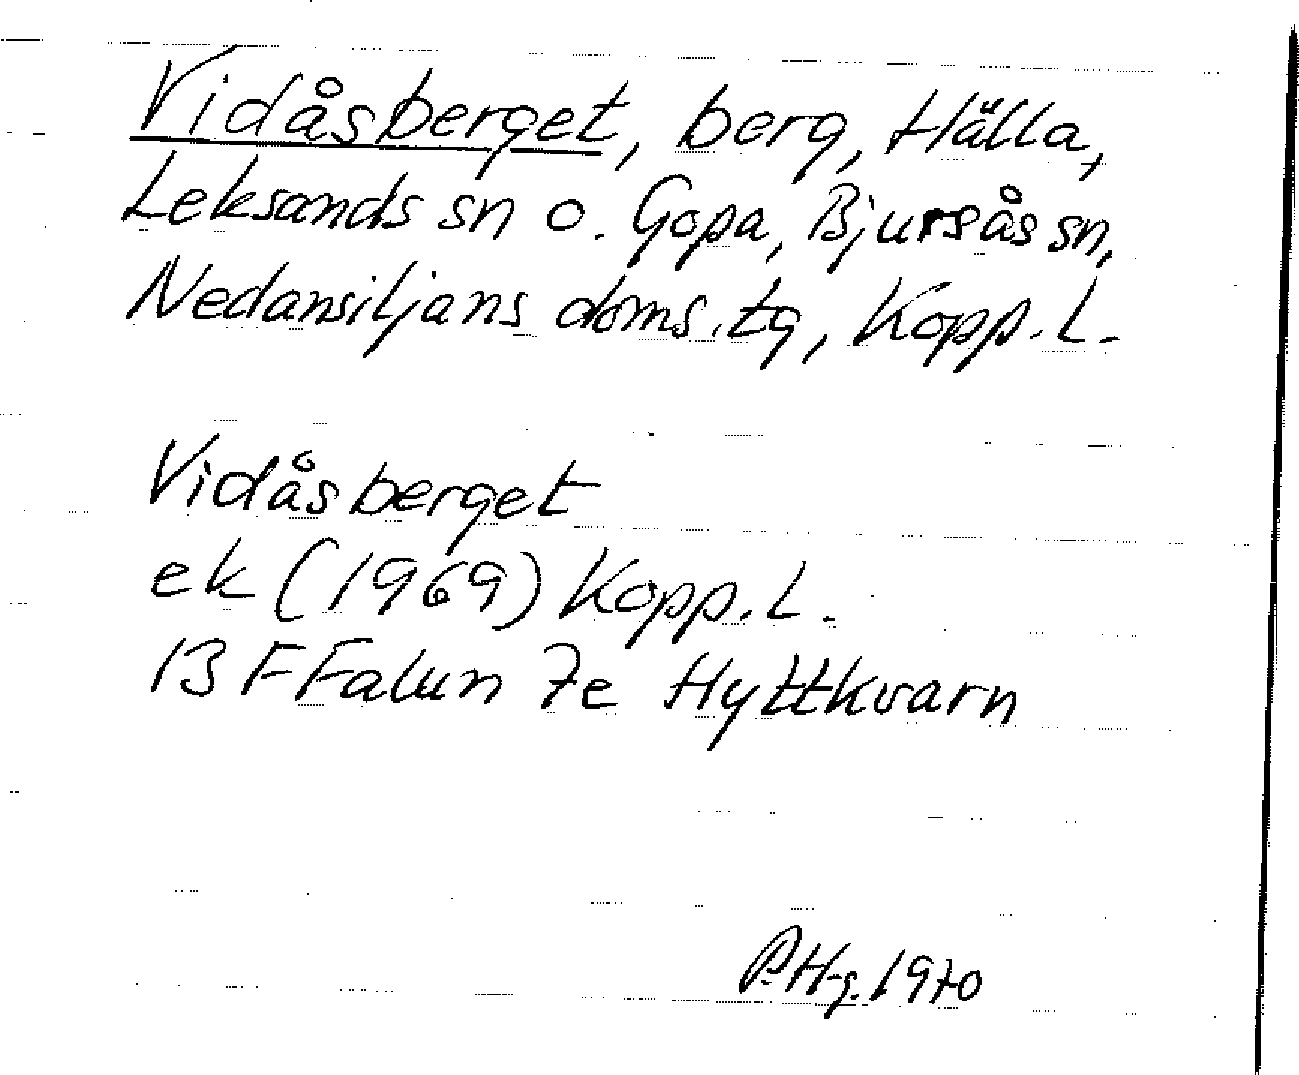 Vidåsberget, berg, Hälla,
Leksands sn o. Gopa, Bjursås sn,
Nedansiljans doms.tg, Kopp.L.
Vidåsberget
ek (1969) Kopp.L.
13 F Falun 7e Hyttkvarn
P.Hg. 1970